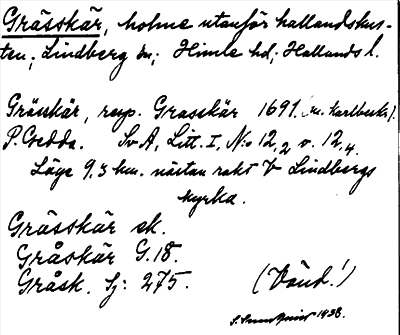 Grässkär, holme utanför hallandskus-
ten; Lindberg sn; Himle hd; Hallands l.
Grässkär, resp. Grasskär 1691.
P. Gedda. Sv A, Litt. I, No 12,2 o. 12,4.
Läge 9,3 km. nästan rakt V Lindbergs
kyrka.
Grässkär ek.
Gråskär G.18.
Gråsk. Sj: 275. (Vänd!)
1938.